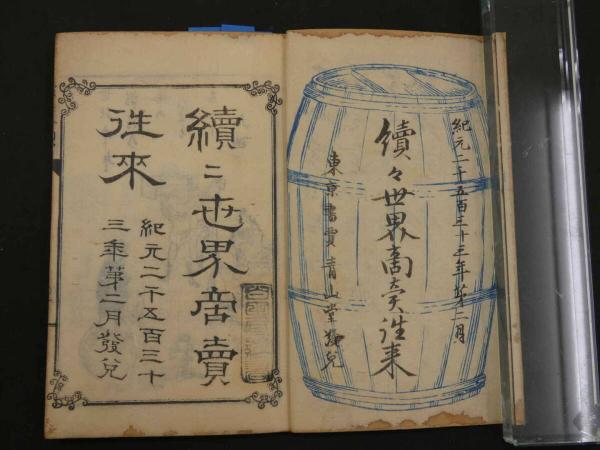 紀元二千五百三十三年第二月
續々世界商賣往来
東京書賈青山堂發兌
續二世界商賣
往來
紀元二千五百三十
三年第二月發兌